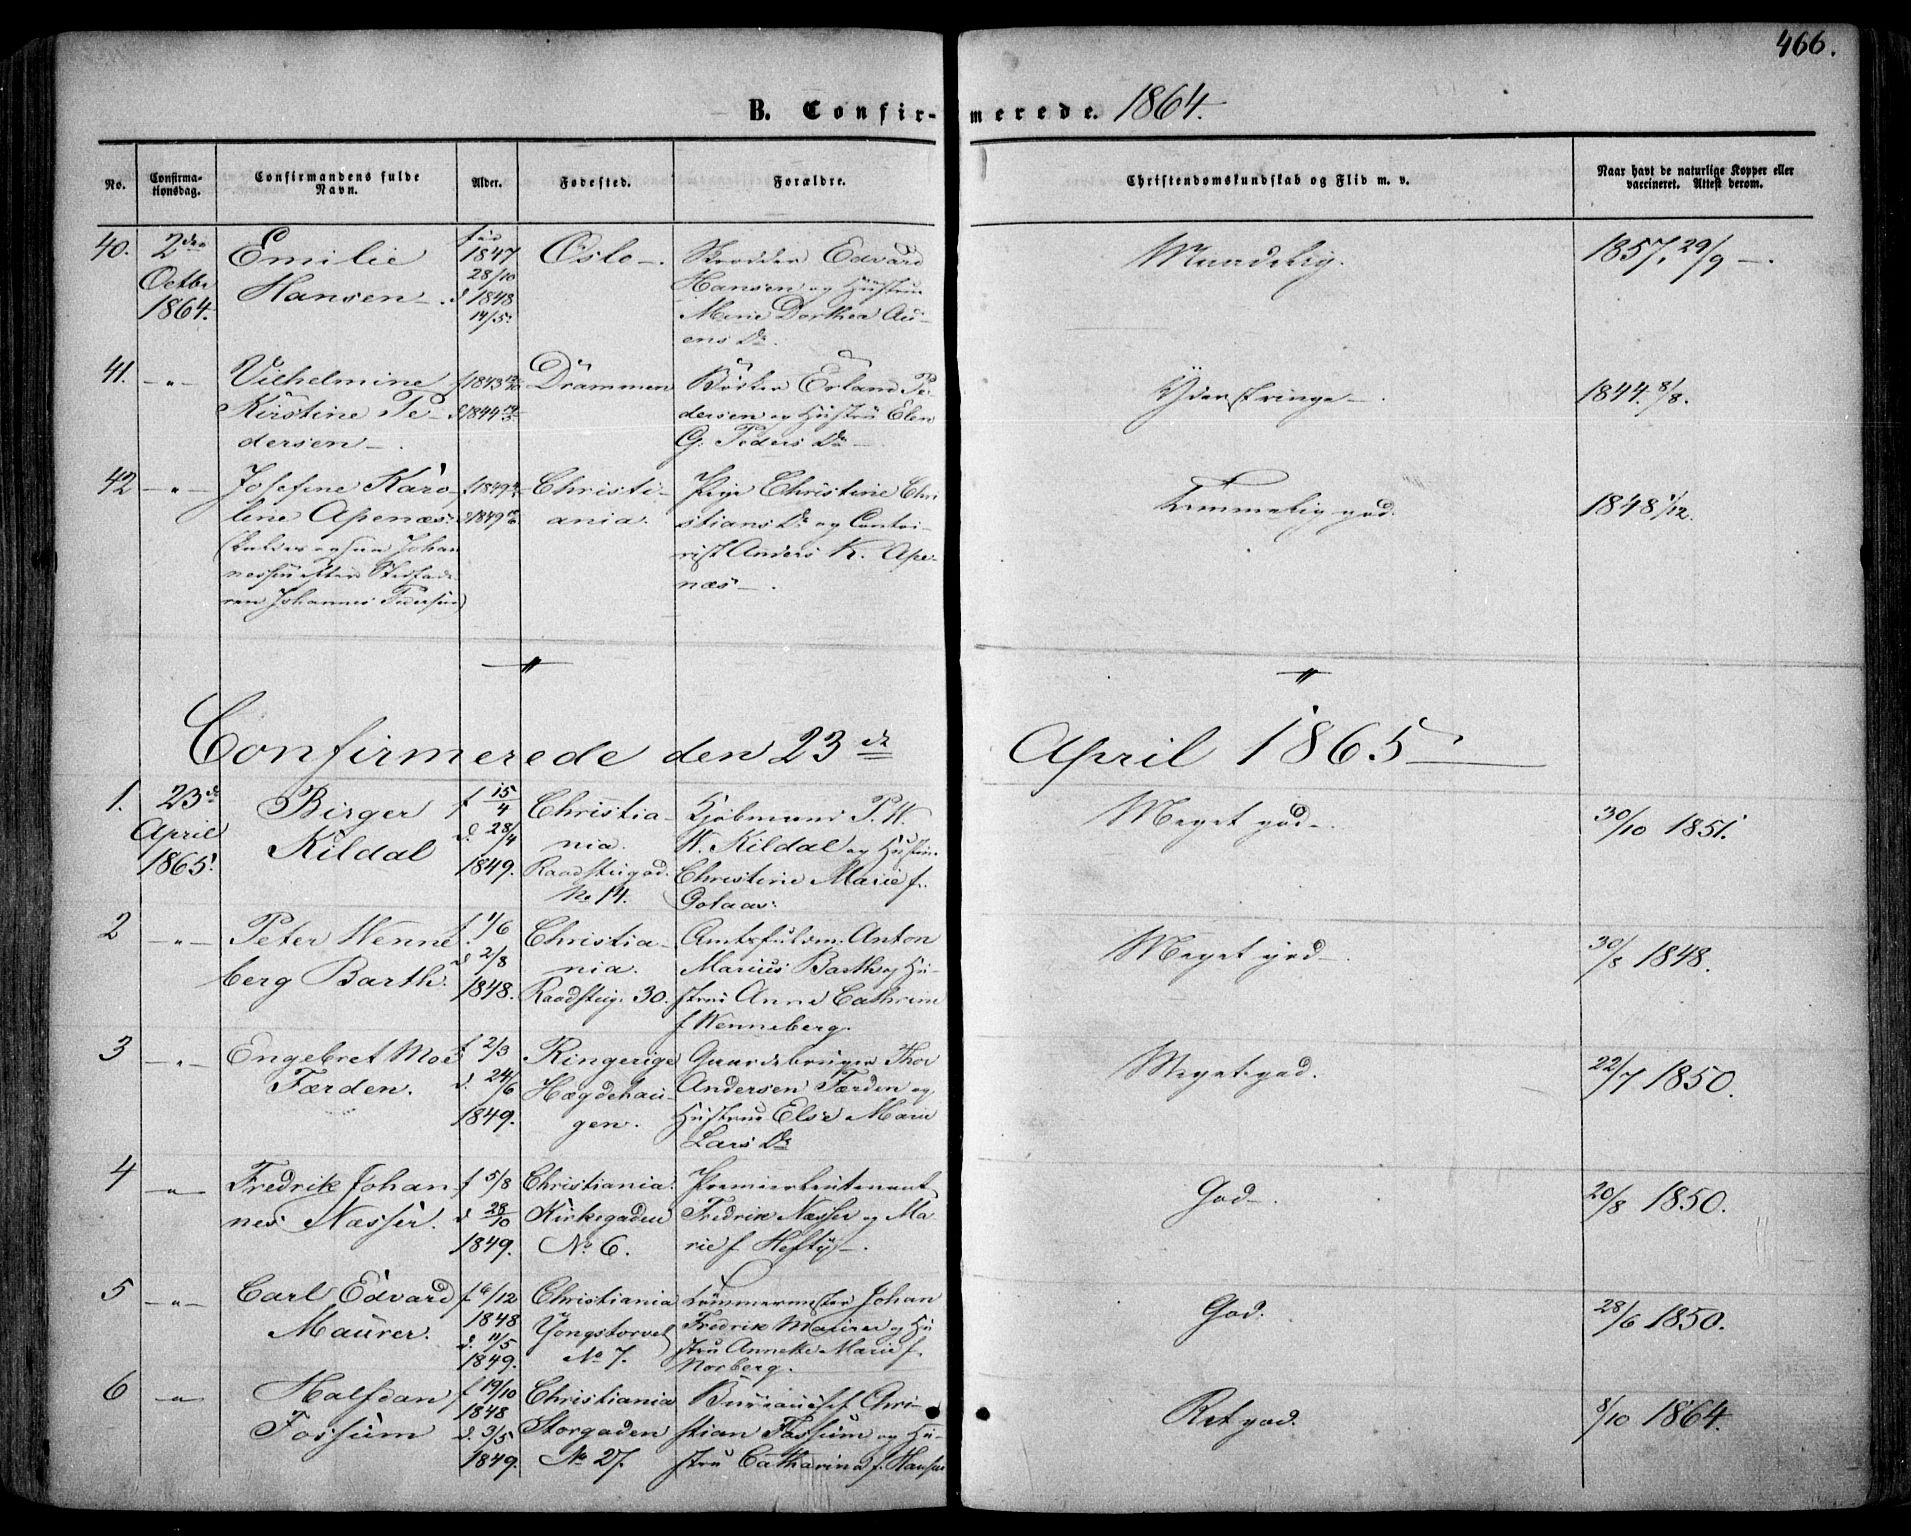 466.
B. Confirmerede. 1864.
No.
Confirmationsdag.
Confirmandens fulde Navn.
Alder.
Fødested.
Forældre.
Christendomskundskab og Flid m. v.
Naar havt de naturlige Kopper eller vaccineret. Attest derom.
40.
2den
Octbr
1864.
Emilie
Hansen
fød
1847
28/10
d 1848
14/5.
Oslo
Skrædder Edvard
Hansen og Hustru
Marie Dorthea
ens Dr
Maadelig.
1857, 29/9
41.
Vilhelmine
Kirstine Pe-
dersen
f 1843
d 1844
Drammen
Bødker Erland Pe-
dersen og Hustru Elen
G. Peders Dr
Yderst ringe
1844. 8/8.
42
Josefine Karo-
line Apenæs
(kaldes ogsaa Johan
nessen efter Stedfade
ren Johannes Pedersen)
f 1849
d 1849
Christi-
ania.
Pige Christine Chri
stians Dr og Contoi-
rist Anders K. Ape-
næs
Temmelig god.
1848 1/12.
Confirmerede den 23de April 1865
1.
23de
April
1865.
Birger
Kildal
f 15/4
d. 28/4
1849.
Christia-
nia.
Raadstugad.
No 14.
Kjøbmand P. W.
W. Kildal og Hustru
Christine Marie f.
Meget god
30/10 1851.
2
Peter Wenne
berg Barth.
f. 1/6
d 2/8
1848.
Christia-
nia.
Raadstug. 30.
Amtsfuldm. Anton
Marius Barth og Hu-
stru Anne Cathrine
f Wenneberg.
Meget god
30/8 1848.
3
Engebret Moe
Færden.
f 2/3
d. 24/6
1849.
Ringerige
Hægdehau-
gen.
Gaardsbruger Thor
Andersen Færden og
Hustrue Else Marie
Lars Dr
Meget god.
22/7 1850.
4
Fredrik Johan
nes Næsser.
f 5/8
d 28/10
1849.
Christiania.
Kirkegaden
No 6.
Premierlieutenant
Fredrik Næsser og Ma-
rie f Heftÿ
God
20/8 1850.
5
Carl Edvard
Maurer.
f 6/12
1848
d. 11/5
1849.
Christiania
Yongstorvet
No 7.
Tømmermester Johan
Fredrik Maurer og Hu
stru Annette Marie f.
Norberg.
God.
28/6 1850.
6
Halfdan
Fossum
f 19/10
1848
d. 3/5
1849.
Christiania
Storgaden
No 27.
Bureauchef Chri-
stian Fossum og Hu-
stru Catharina f. Hansen
Ret god.
8/10 1864.